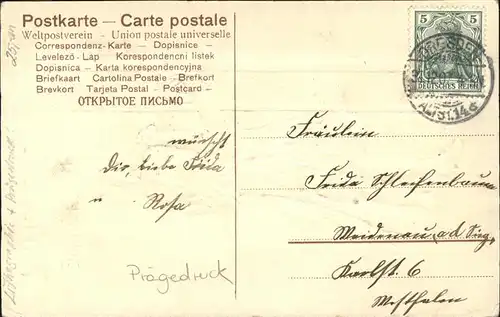 Postkarte — Carte postale
Weltpostverein - Union postale universelle
Correspondenz-Karte — Dopisnice -
Levelező-Lap Korespondencni listek
Dopisnica — Karta korespondencyjna
Briefkaart Cartolina Postale - Brefkort
Brevkort Tarjeta Postal — Postcard —
ОТКРЫТОЕ ПИСЬМО
5 5
DEUTSCHES REICH
DRESDEN
ALTST. 14 d
wünscht
Dir, liebe Frida
u Rosa
Prägedruck
Fräulein
Frida Schleifenbaum
Weidenau, ad Sieg,
Karlst. 6
Westfalen